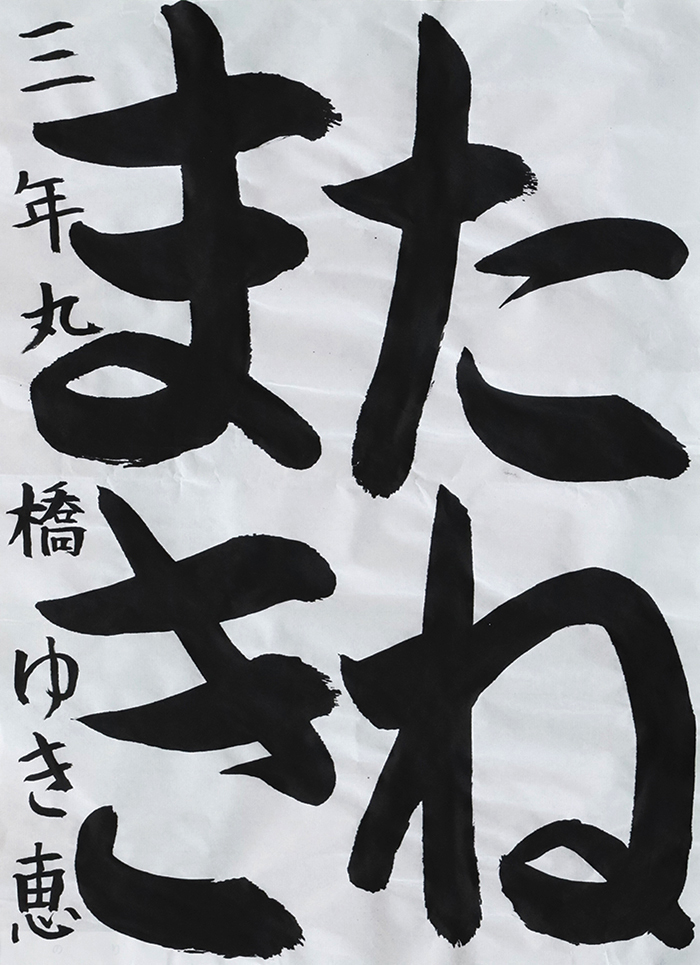 たね
まき
三年丸橋ゆき恵